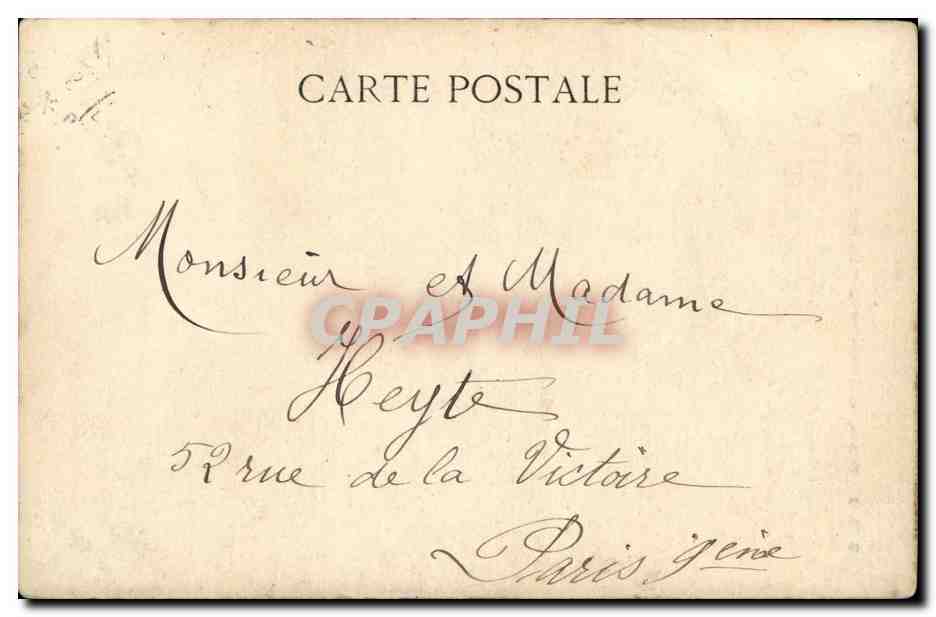 CARTE POSTALE
Monsieur et Madame
CPAPHIL
Heyte
52 rue de la Victoire
Paris 9eme